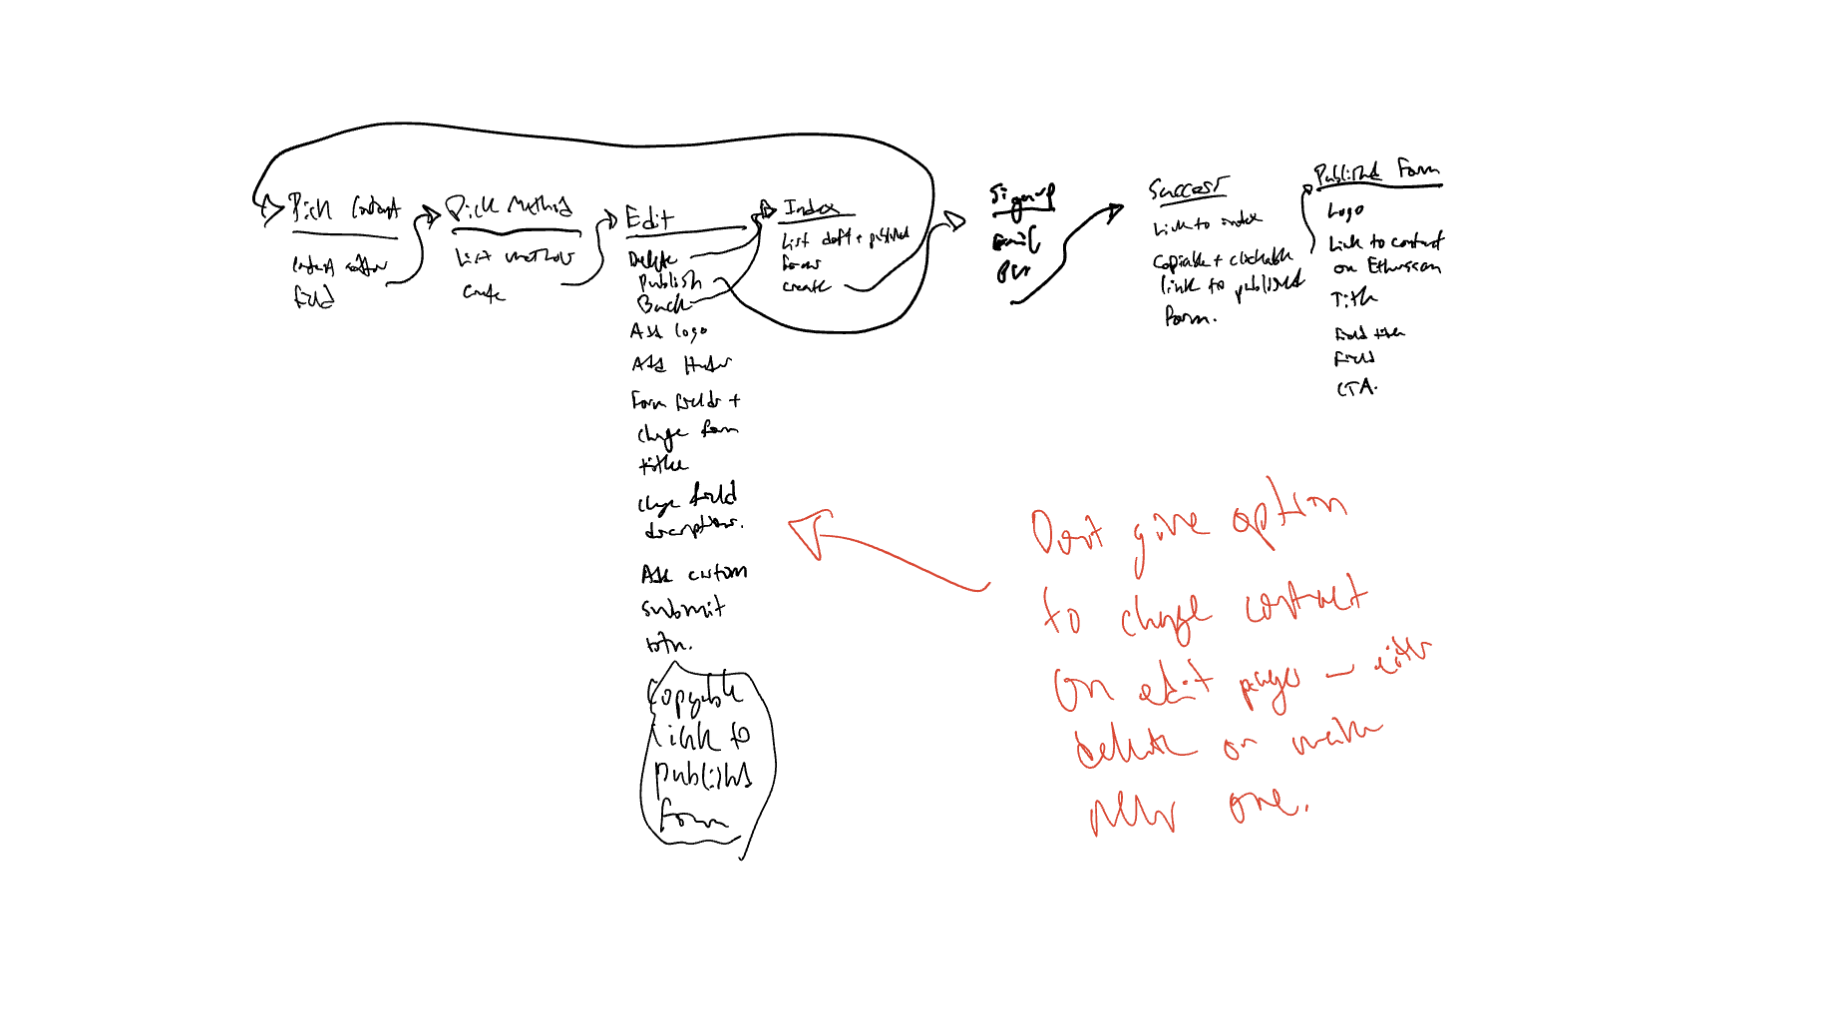 Pick Contract
Contract addr
field
Pick Method
List methods
Create
Edit
Delete
Publish
Back
Add logo
Add Header
Form fields +
change form
title
change field
descriptions.
Add custom
submit
btn.
Copyable
link to
published
form
Index
List draft + published
forms
create
Signup
Email
Success
Link to index
Copiable + clickable
link to published
Form.
Published Form
Logo
Link to contract
on Etherscan
Title
Field title
Field
CTA.
Don't give option
to change contract
on edit page – either
delete or make
new one.